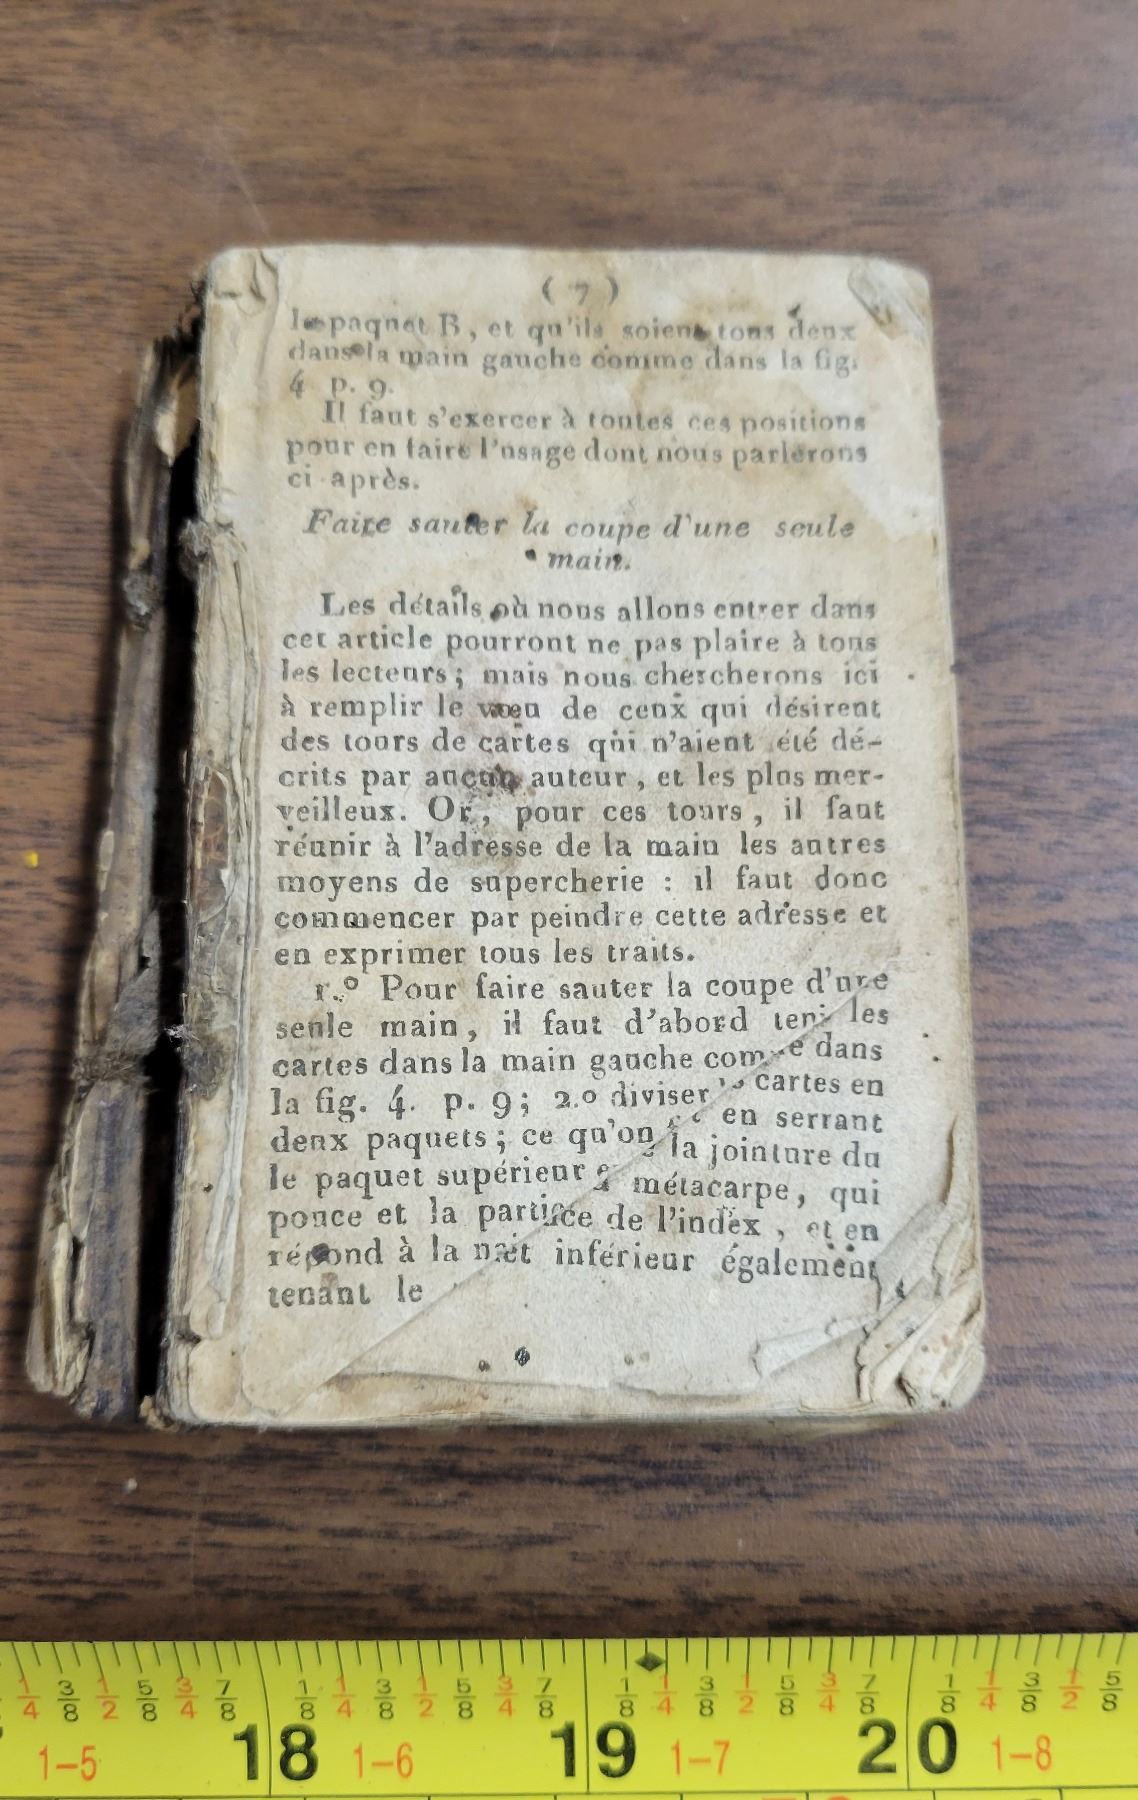 ( 7 )
le paquet B, et qu'ils soient tous deux
dans la main gauche comme dans la fig.
4 p. 9.
Il faut s'exercer à toutes ces positions
pour en faire l'usage dont nous parlerons
ci-après.
Faire sauter la coupe d'une seule
main.
Les détails où nous allons entrer dans
cet article pourront ne pas plaire à tous
les lecteurs ; mais nous chercherons ici
à remplir le vœu de ceux qui désirent
des tours de cartes qui n'aient été dé-
crits par aucun auteur, et les plus mer-
veilleux. Or, pour ces tours, il faut
réunir à l'adresse de la main les autres
moyens de supercherie : il faut donc
commencer par peindre cette adresse et
en exprimer tous les traits.
1.º Pour faire sauter la coupe d'une
seule main, il faut d'abord tenir les
cartes dans la main gauche comme dans
la fig. 4. p. 9 ; 2.º diviser cartes en
deux paquets ; ce qu'on en serrant
le paquet supérieur la jointure du
pouce et la partie métacarpe, qui
répond à la de l'index, et en
tenant le inférieur également
1/4 3/8 1/2 5/8 3/4 7/8 1/8 1/4 3/8 1/2 5/8 3/4 7/8 1/8 1/4 3/8 1/2 5/8 3/4 7/8 1/8 1/4 3/8 1/2 5/8
1-5 18 1-6 19 1-7 20 1-8